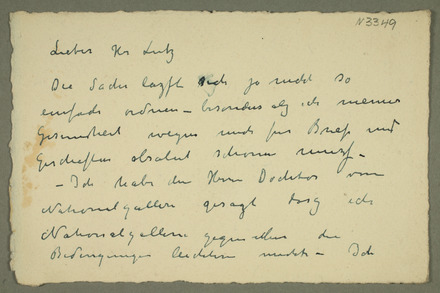 N 3349
Lieber Hr Lutz
Die Sache lässt sich ja nicht so
einfach ordnen – besonders als ich meiner
Gesundheit wegen mich für Brief und
Geschäften absolut schonen muss –
– Ich habe den Herrn Docktor von
Nationalgallerie gesagt dass ich
Nationalgallerie gegenüber die
Bedingungen – Ich